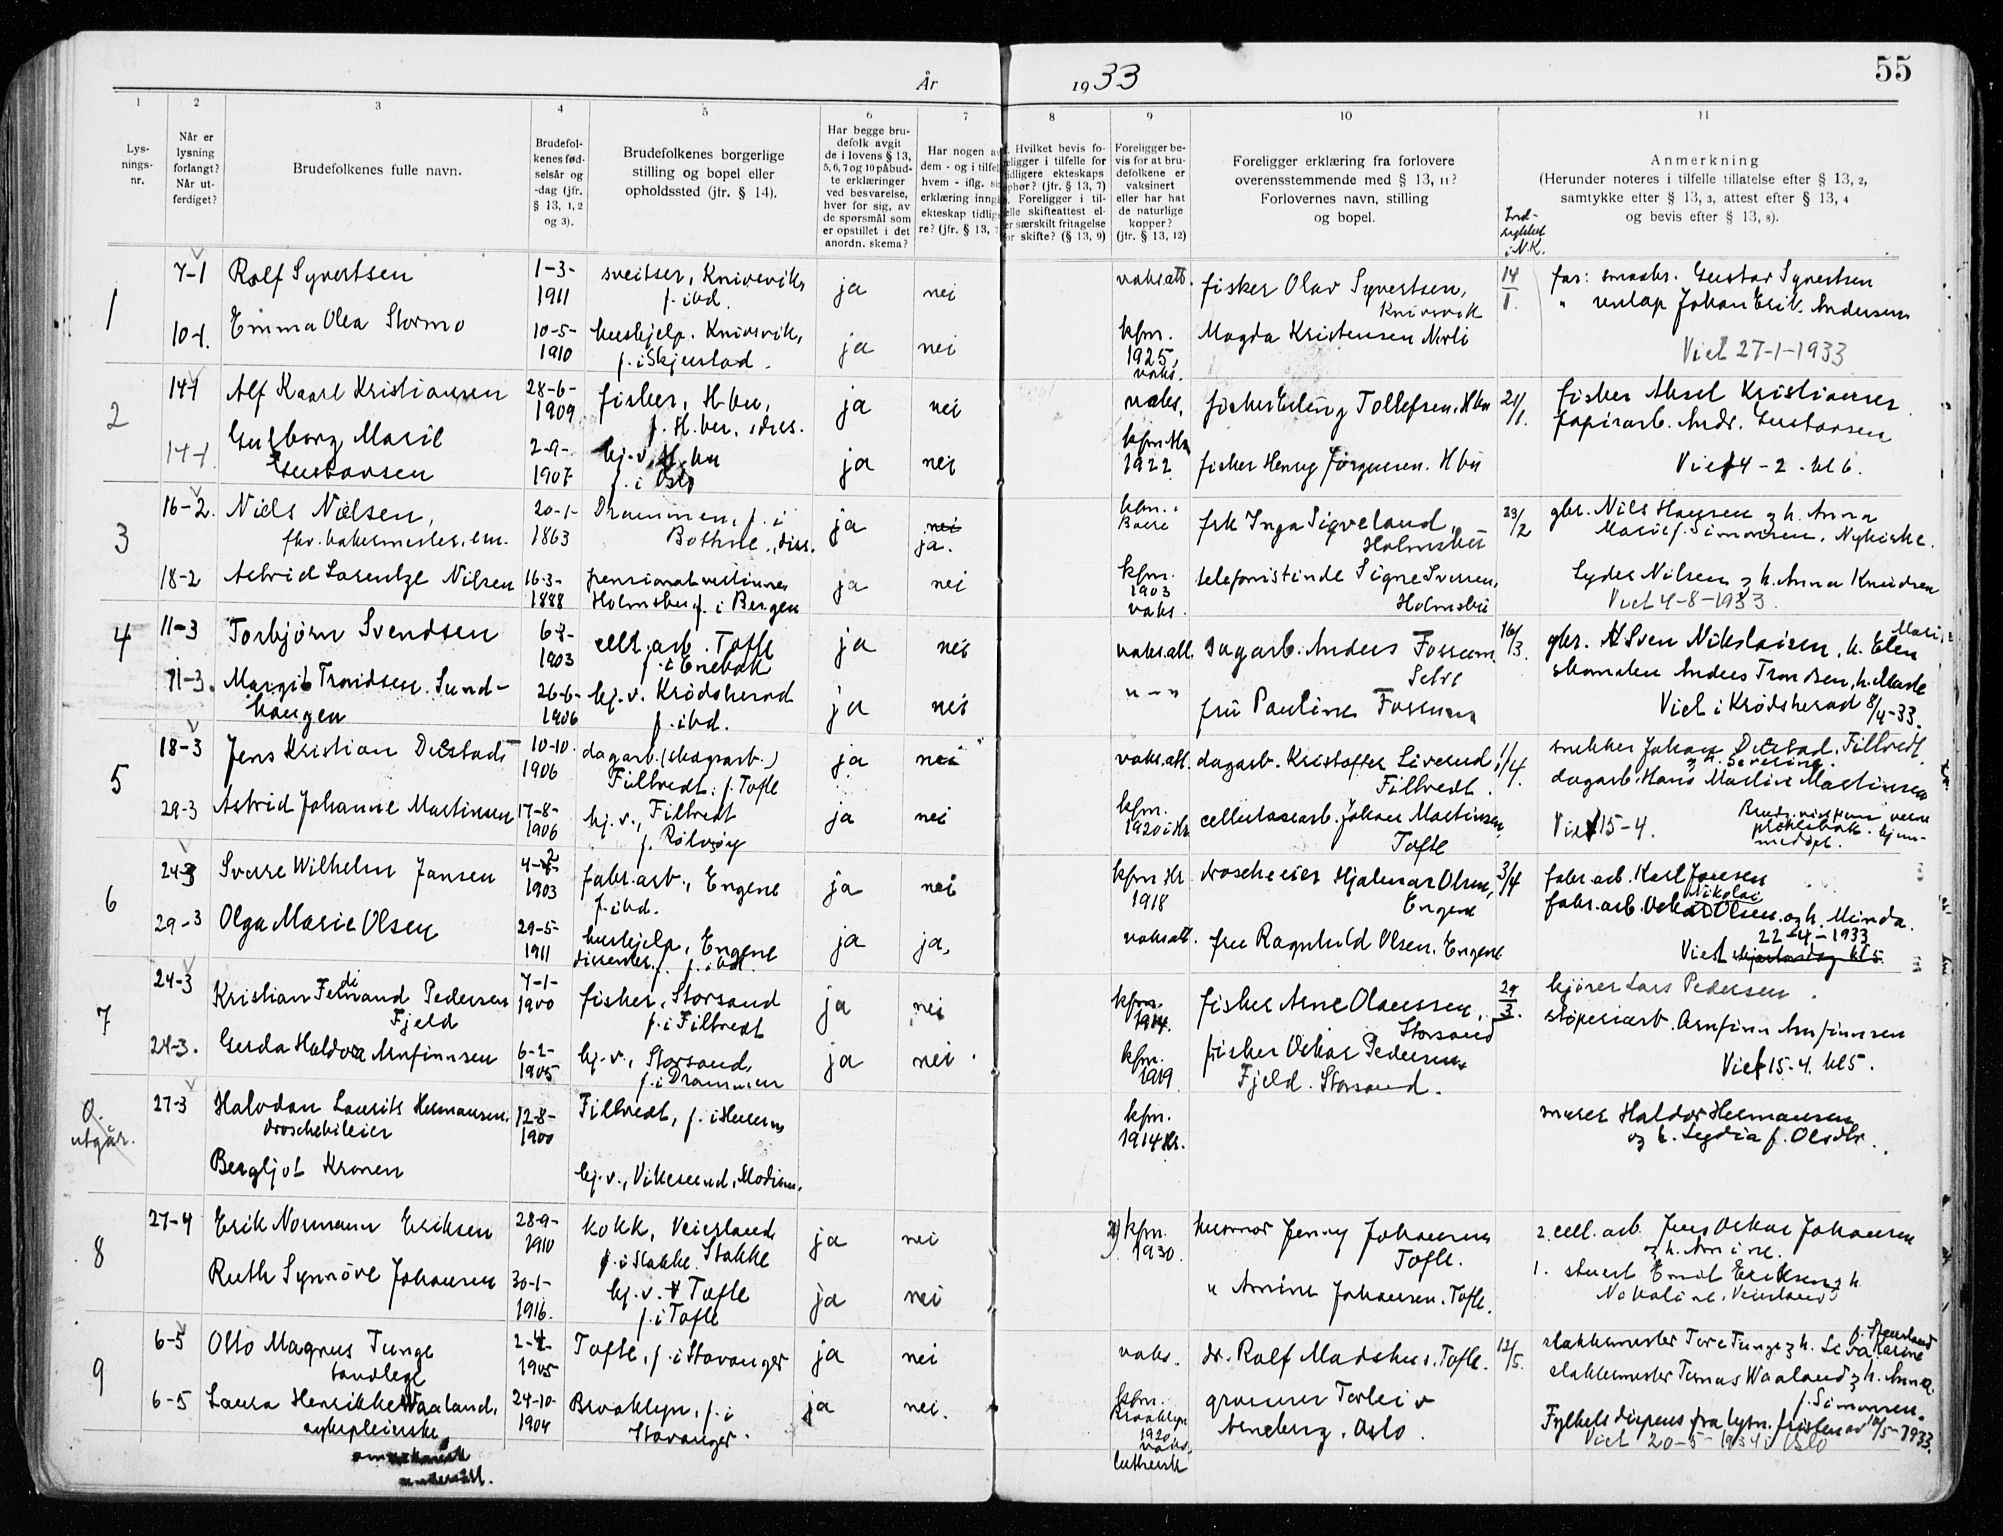 55
År
1933
1
2
3
4
5
6
7
8
9
10
11
Lys-
nings-
nr.
Når er
lysning
forlangt?
Når ut-
ferdiget?
Brudefolkenes fulle navn.
Brudefol-
kenes fød-
selsår og
-dag (jfr.
§ 13, 1, 2
og 3).
Brudefolkenes borgerlige
stilling og bopel eller
opholdssted (jfr. § 14).
Har begge bru-
defolk avgit
de i lovens § 13,
5, 6, 7 og 10 påbud-
te erklæringer
ved besvarelse,
hver for sig, av
de spørsmål som
er opstillet i det
anordn. skema?
Har nogen av
dem - og i tilfel
hvem - iflg. s
erklæring inng
ekteskap tidlig
re? (jfr. § 13, 7
Hvilket bevis fo-
religger i tilfelle for
tidligere ekteskaps
ophør? (jfr. § 13, 7)
Foreligger i til-
felle skifteattest el-
er særskilt fritagelse
for skifte? (§ 13, 9)
Foreligger be-
vis for at bru-
defolkene er
vaksinert
eller har hat
de naturlige
kopper?
(jfr. § 13, 12)
Foreligger erklæring fra forlovere
overensstemmende med § 13, 11?
Forlovernes navn, stilling
og bopel.
Ind-
rykket
i N.K.
Anmerkning
(Herunder noteres i tilfelle tillatelse efter § 13, 2,
samtykke efter § 13, 3, attest efter § 13, 4
og bevis efter § 13, 8).
1
7-1 Rolf Syvertsen 1-3- sveitser, Knivsvik ja nei vaks.att. fisker Olav Syvertsen, 14 far: smaabr. Gustav Syvertsen
1911 f. ibd. Knivsvik 1. " Johan Erik Andersen
10-1. Emma Olea Stormo 10-5- hushjelp. Knivsvik, ja nei kfm. Magda Kristensen
1910 f. i Skjerstad. 1925, vaks. Viet 27-1-1933
2
14-1 Alf Kaarl Kristiansen 28-6- fisker, H-bu, ja nei vaks. fisker Erling Tollefsen. H bu 21/1. fisker Aksel Kristiansen
1909 f. H.bu., diss. papirarb. Andr. Gustavsen
14-1 Gulborg Marie 2-9- hj.v. H.bu ja nei kfm.
Gustavsen 1907 f. i Oslo 1922 fisker Henry Jørgensen. H bu Viet 4-2. kl 6.
3
16-2. Niels Nielsen, 20-1- Drammen, f. i ja nei kfm. i frk Inga Sigveland, 23/2 gbr. Nils Hansen og h. Anna
fhv. bakermester, em. 1863 Bothne., diss. ja. Holmsbu Marie f. Simonsen, Nykirke.
18-2 Astrid Lorentze Nilsen 16-3- pensionatvertinne ja nei kfm. telefonistinde Signe Iversen, Nilsen og h. Anna Knudsen
1888 Holmsbu f. i Bergen 1903 vaks. Holmsbu Viet 4-8-1933.
4
11-3 Torbjørn Svendsen 6- cell.arb. Tofte ja nei vaks.att. dagarb. Anders Fossum. 16/3. gbr. Sven Nikolaisen, h. Elen Mari
1903 f. i Enebak Anders Trondsen, h. Marte
11-3. Margit Trondsen Sund- 26-6- hj.v. Krødsherad ja nei " - " fru Pauline Fossum Viet i Krødsherad 8/4-33.
haugen 1906 f. ibd.
5
18-3 Jens Kristian 10-10- dagarb. (skogsarb.) ja nei vaks.att. dagarb. Kristoffer Liverud 1/4. snekker Johan Filtvedt.
1906 Filtvedt. f. Tofte Filtvedt. og h. Severine.
29-3 Astrid Johanne Martinsen 17-8- hj.v., Filtvedt ja nei kfm. cellulosearb. Johan Martinsen, dagarb. Hans Martin Martinsen
1906 f. Rølvsøy 1920 i Hr Tofte Viet 15-4.
6
24-3 Sverre Wilhelm Jansen 4-2 fabr.arb., Engene ja nei kfm Hr droscheeier Hjalmar Olsen, 3/4 fabr.arb. Karl Jansen
1903 f. ibd. 1918 Engene Nikolai
29-3 Olga Marie Olsen 29-5- hushjelp, Engene ja ja, vaksatt. fru Ragnhild Olsen. Engene fabr.arb. Oskar Olsen og h. Minda.
1911 dissenter. f. ibd. 22-4-1933
Viet
7
24-3 Kristian Ferdinand Pedersen 7-1- fisker, Storsand ja nei kfm. fisker Arne Olaussen, 29/3. kjører Lars Pedersen.
Fjeld 1900 f. i Filtvedt 1914. Storsand støperiarb. Arnfinn Arnfinnsen
24-3. Gerda Haldora Arnfinnsen 6-2- hj.v., Storsand, ja nei. kfm. fisker Oskar Pedersen
1905 f. i Drammen 1919 Fjeld. Storsand. Viet 15-4. kl 5.
0.
utgår.
27-3 Halvdan Laurits Hermansen, 12-8- Filtvedt, f. i Hurum kfm. murer Haldor Hermansen
droschebileier 1900 1914 Hr. og h. Lydia f. Olsdtr.
Bergljot Kronen hj.v., Vikersund, Modum.
8
27-4 Erik Normann Eriksen 28-9- kokk, Veierland ja nei kfm. husmor Jenny Johansen 2. cell. arb. Jens Oskar Johansen
1910 f. i Stokke. Stokke 1930. Tofte. og h. Amine.
Ruth Synnøve Johansen 30-1- hj.v. Tofte ja nei " Amine Johansen. Tofte. 1. stuert Emil Eriksen og h.
1916. f. i Tofte Veierland
9
6-5 Otto Magnus Tunge 2-4 Tofte, f. i Stavanger ja nei vaks. dr. Rolf Madshus. Tofte. 12/5. slaktermester Tore Tunge og h. Karine
tandlege 1905 slaktermester Ternas Waaland og h. Anna
6-5 Laura Henrikke Waaland, 24-10- Brooklyn, f. i ja nei. kfm. Torleiv f. Simonsen.
sykepleierske 1904 Stavanger. Brooklyn Arneberg, Oslo. Fylkets dispens. fra lysn. 10/5-1933.
1920 vaks. Viet 20-5-1934 i Oslo
luthersk
amerikansk
undersått.